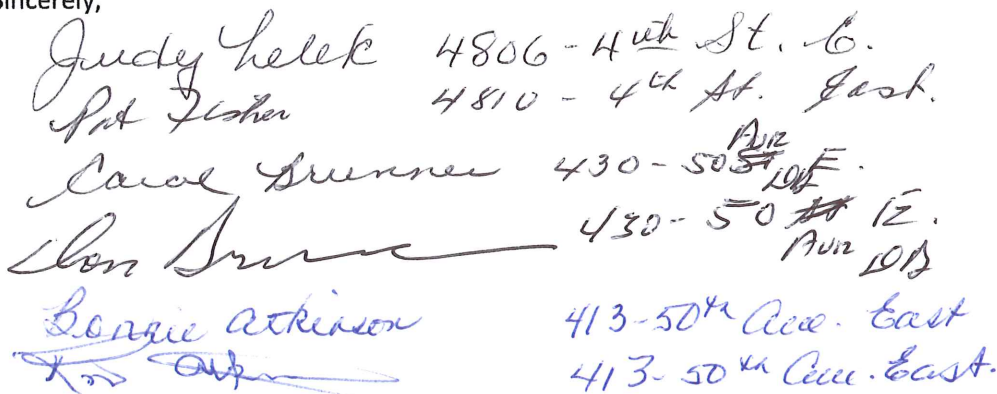 Sincerely,
Judy Lelek 4806 - 4th St. E.
Pat Fisher 4810 - 4th St. East.
Carol Brunner 430 - 50 St Ave E. DB
Don 430 - 50 St Ave E. DB
Bonnie Atkinson 413-50th Ave. East
413-50th Ave. East.